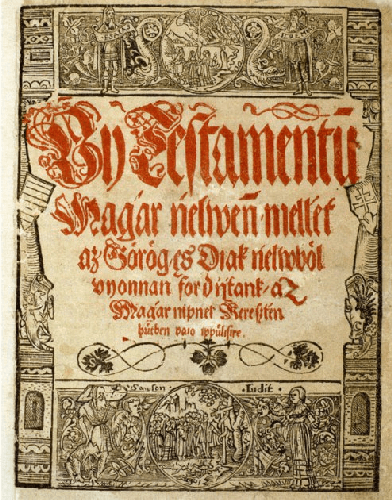 Vy Testamentū
Magar ńelweń mellet
az Görög ęs Diak ńelwbȯl
vyonnan fordıtank, aZ
Magar nipnek Kereßtén
hütben valo ıppülısıre.
Iudit